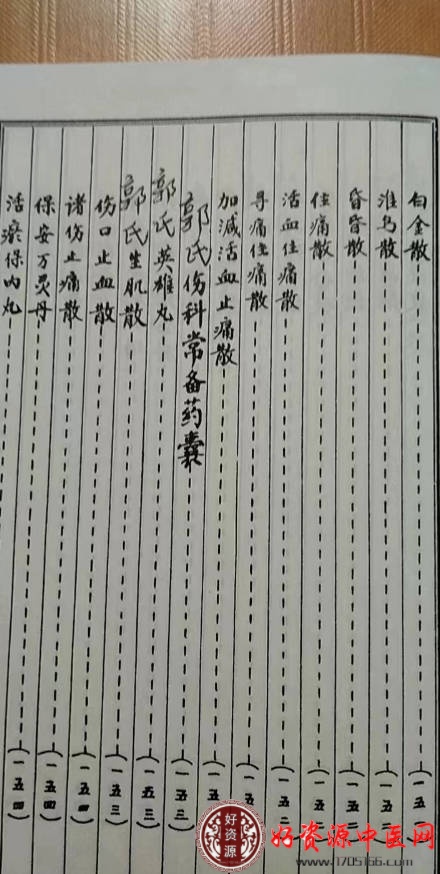 白金散（一五
淮乌散（一五
昏昏散（一五二
住痛散（一五
活血住痛散（一五二
寻痛住痛散（一五
加减活血止痛散（一五
郭氏伤科常备药囊（一五三
郭氏英雄丸（一五三）
郭氏生肌散（一五三）
伤口止血散（一五三）
诸伤止痛散（一五四）
保安万灵丹（一五四）
活瘀保内丸（一五四）
好资源
好资源中医网
www.1705166.com